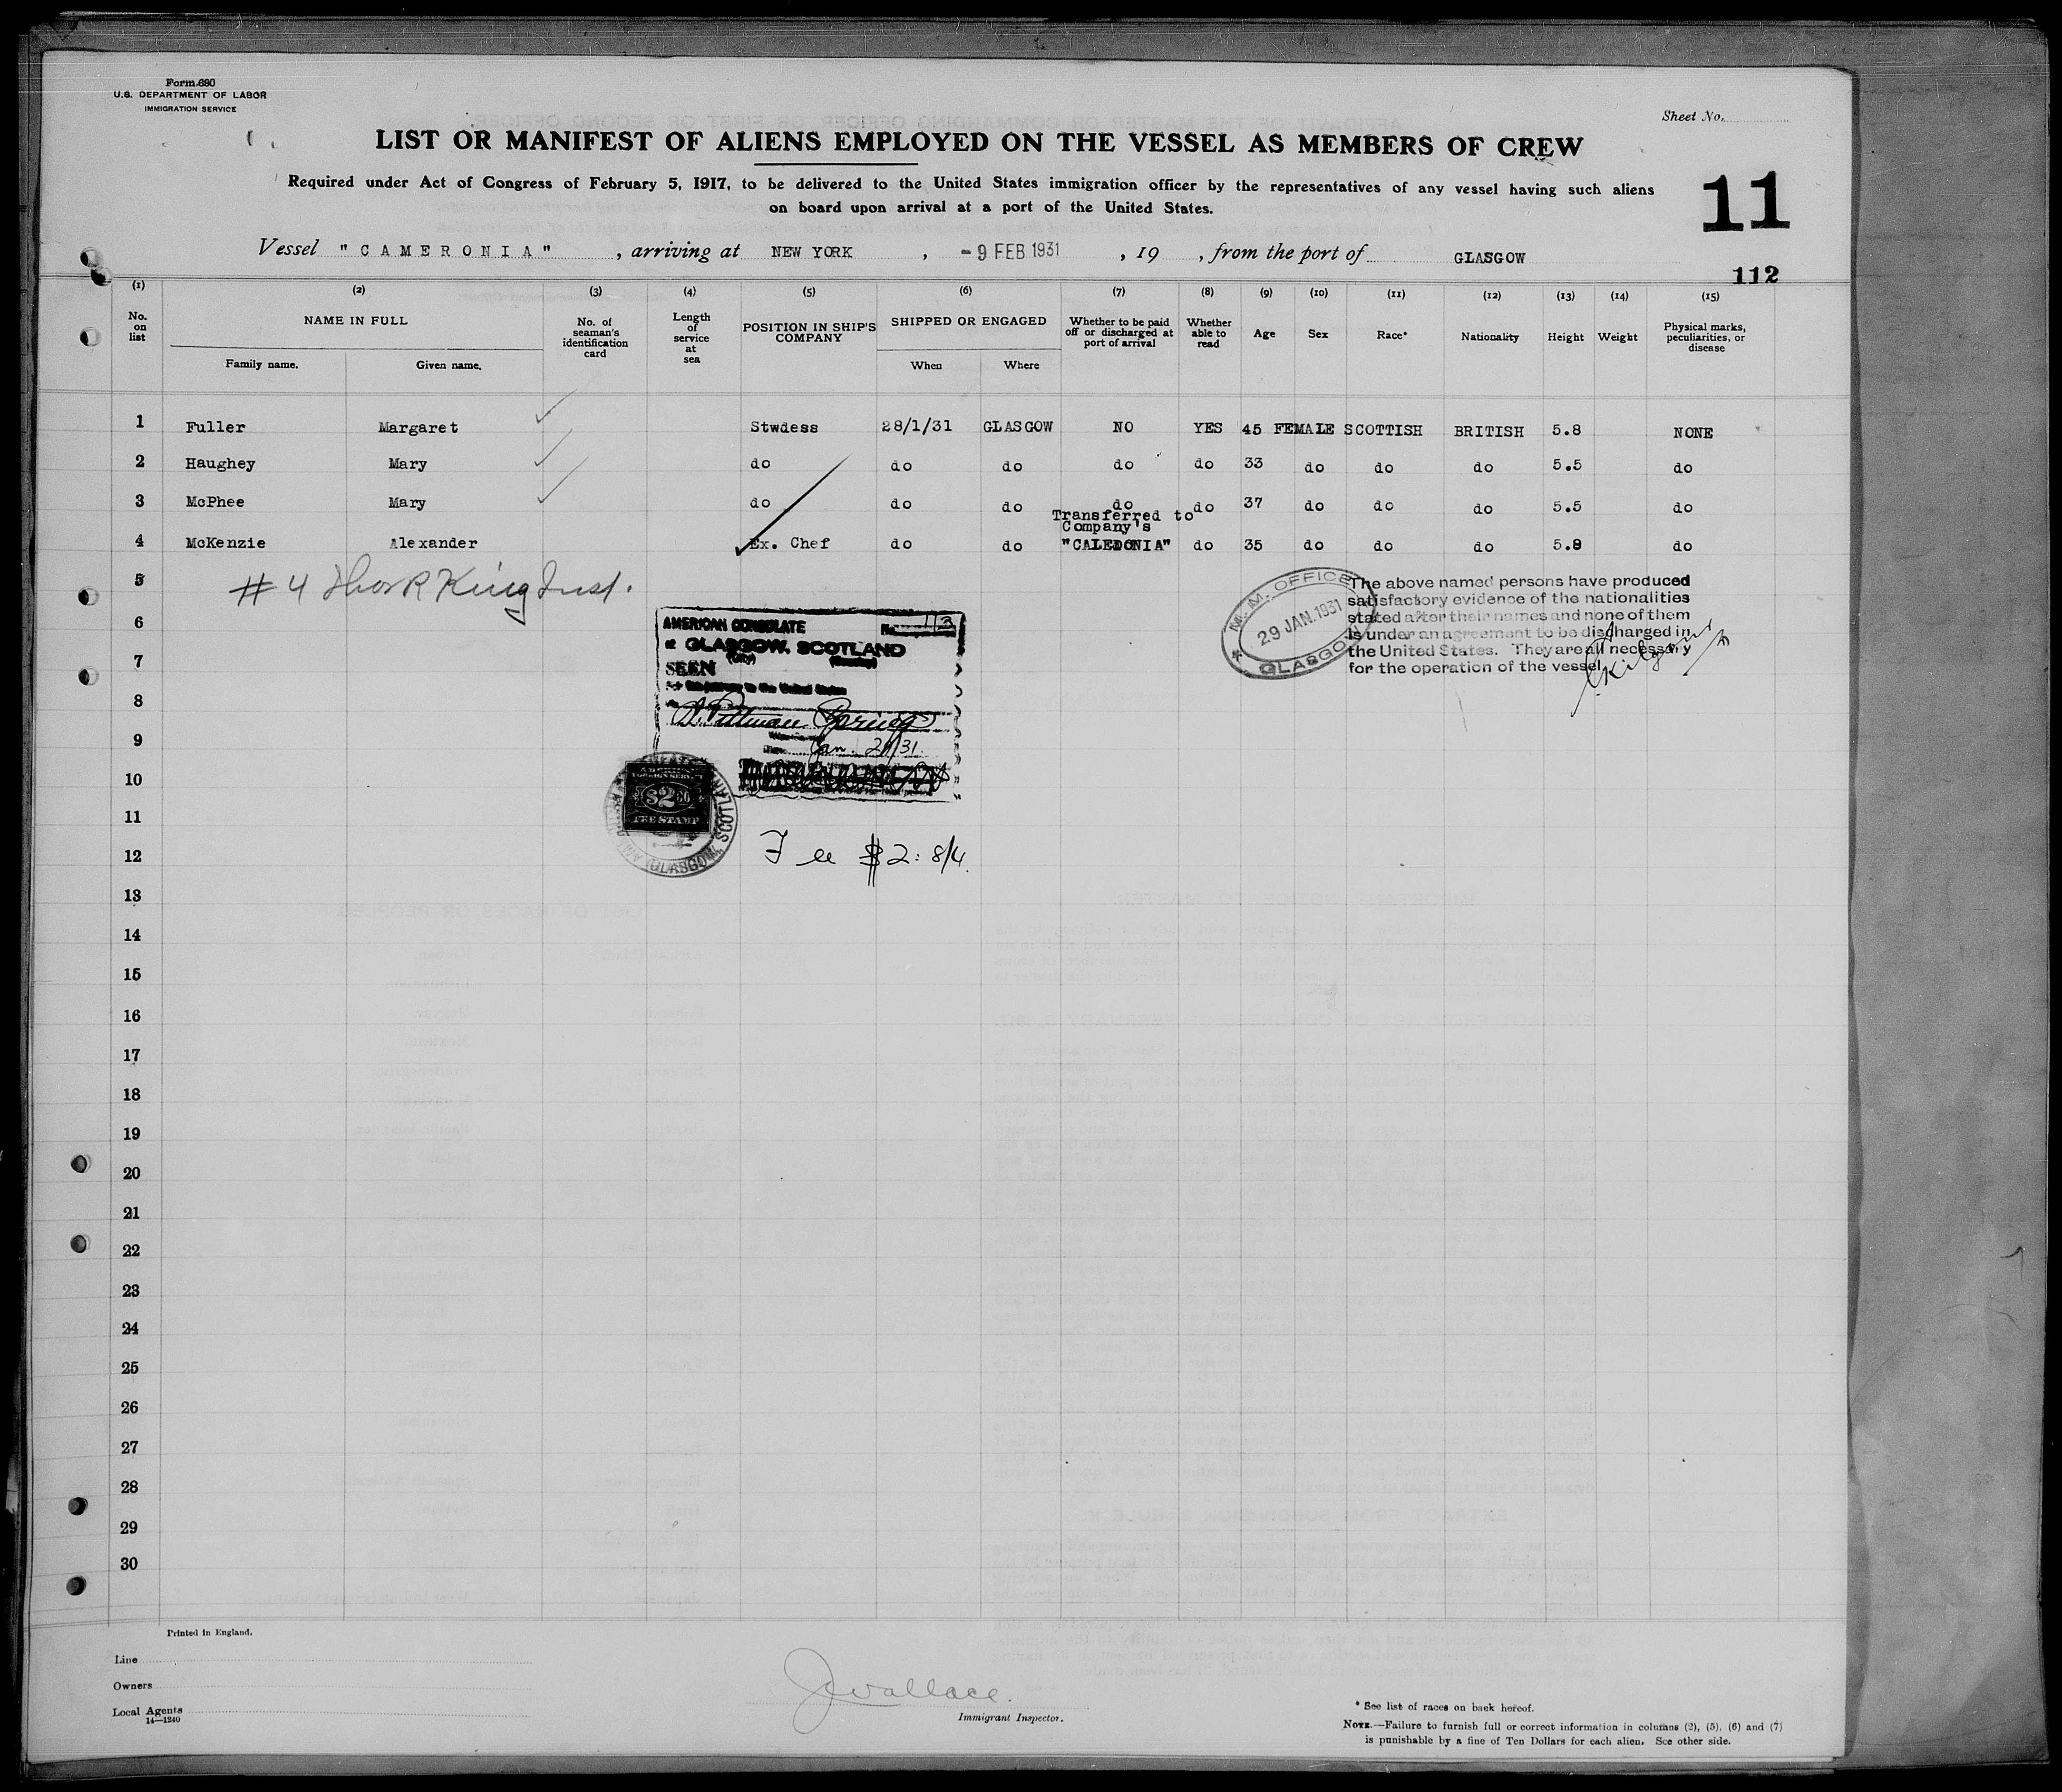 Form 680
U.S. DEPARTMENT OF LABOR
IMMIGRATION SERVICE
Sheet No.
LIST OR MANIFEST OF ALIENS EMPLOYED ON THE VESSEL AS MEMBERS OF CREW
Required under Act of Congress of February 5, 1917, to be delivered to the United States immigration officer by the representatives of any vessel having such aliens
on board upon arrival at a port of the United States.
11
Vessel "CAMERONIA", arriving at NEW YORK, -9 FEB 1931, 19 , from the port of GLASGOW
112
(1) (2) (3) (4) (5) (6) (7) (8) (9) (10) (11) (12) (13) (14) (15)
No. on list NAME IN FULL Family name. Given name. No. of seaman's identification card Length of service at sea POSITION IN SHIP'S COMPANY SHIPPED OR ENGAGED When Where Whether to be paid off or discharged at port of arrival Whether able to read Age Sex Race* Nationality Height Weight Physical marks, peculiarities, or disease
1 Fuller Margaret Stwdess 28/1/31 GLASGOW NO YES 45 FEMALE SCOTTISH BRITISH 5.8 NONE
2 Haughey Mary do do do do do 33 do do do 5.5 do
3 McPhee Mary do do do do do 37 do do do 5.5 do
4 McKenzie Alexander Ex. Chef do do Transferred to Company's "CALEDONIA" do 35 do do do 5.8 do
5 #4 Thos R King Insp.
6
7
8
9
10
11
12
13
14
15
16
17
18
19
20
21
22
23
24
25
26
27
28
29
30
AMERICAN CONSULATE
No. 113
at GLASGOW, SCOTLAND
(City) (Country)
SEEN
to the United States
Pittman Sprigg
Jan. 29/31.
$2.00
FEE STAMP
GLASGOW, SCOTLAND
Fee $2: 8/4.
M.M. OFFICE
29 JAN. 1931
GLASGOW
The above named persons have produced
satisfactory evidence of the nationalities
stated after their names and none of them
is under an agreement to be discharged in
the United States. They are all necessary
for the operation of the vessel
Printed in England.
Line
Owners
Local Agents
14—1240
J Wallace.
Immigrant Inspector.
* See list of races on back hereof.
NOTE.—Failure to furnish full or correct information in columns (2), (5), (6) and (7)
is punishable by a fine of Ten Dollars for each alien. See other side.